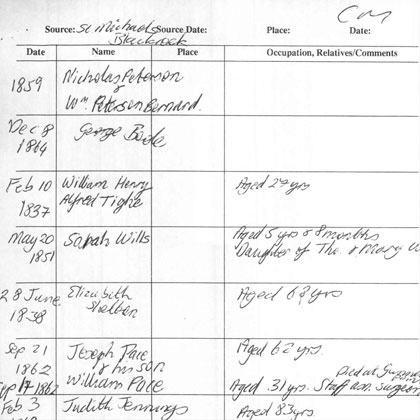 Source: St Michaels Source Date: Place: Date:
Blackrock
Date Name Place Occupation, Relatives/Comments
1859 Nicholas Peterson
& Wm. Peterson Bernard.
Dec 8 1864 George Boole
Feb 10 1837 William Henry Aged 27 yrs
Alfred Tighe
May 20 1851 Sarah Wills Aged 5 yrs & 8 months
Daughter of Tho. & Mary W
28 June 1838 Elizabeth Aged 62 yrs
Sep 21 1862 Joseph Pace Aged 62 yrs.
& his son Died at
Sep 17 1862 William Pace Aged 31 yrs. Staff ass. surgeon
Feb 3 Judith Jennings Aged 83 yrs